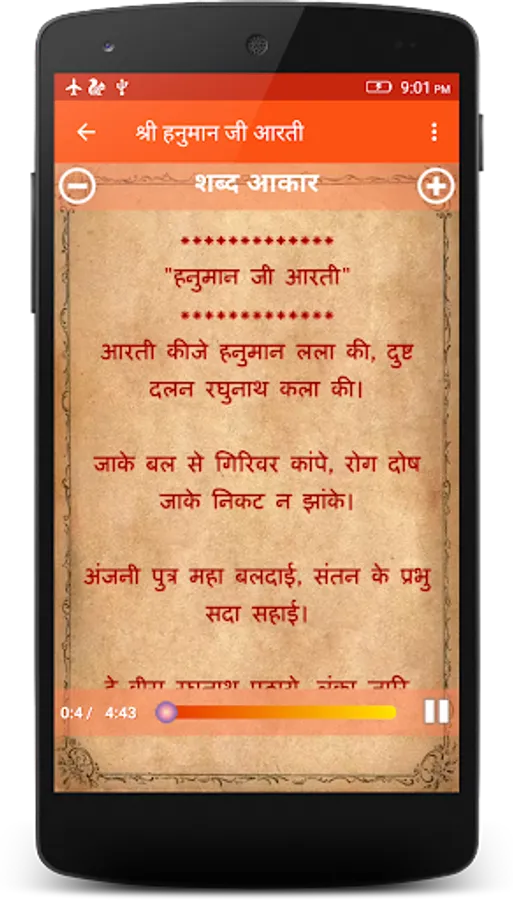 9:01 PM
श्री हनुमान जी आरती
शब्द आकार
"हनुमान जी आरती"
आरती कीजे हनुमान लला की, दुष्ट
दलन रघुनाथ कला की।
जाके बल से गिरिवर कांपे, रोग दोष
जाके निकट न झांके।
अंजनी पुत्र महा बलदाई, संतन के प्रभु
सदा सहाई।
0:4 / 4:43